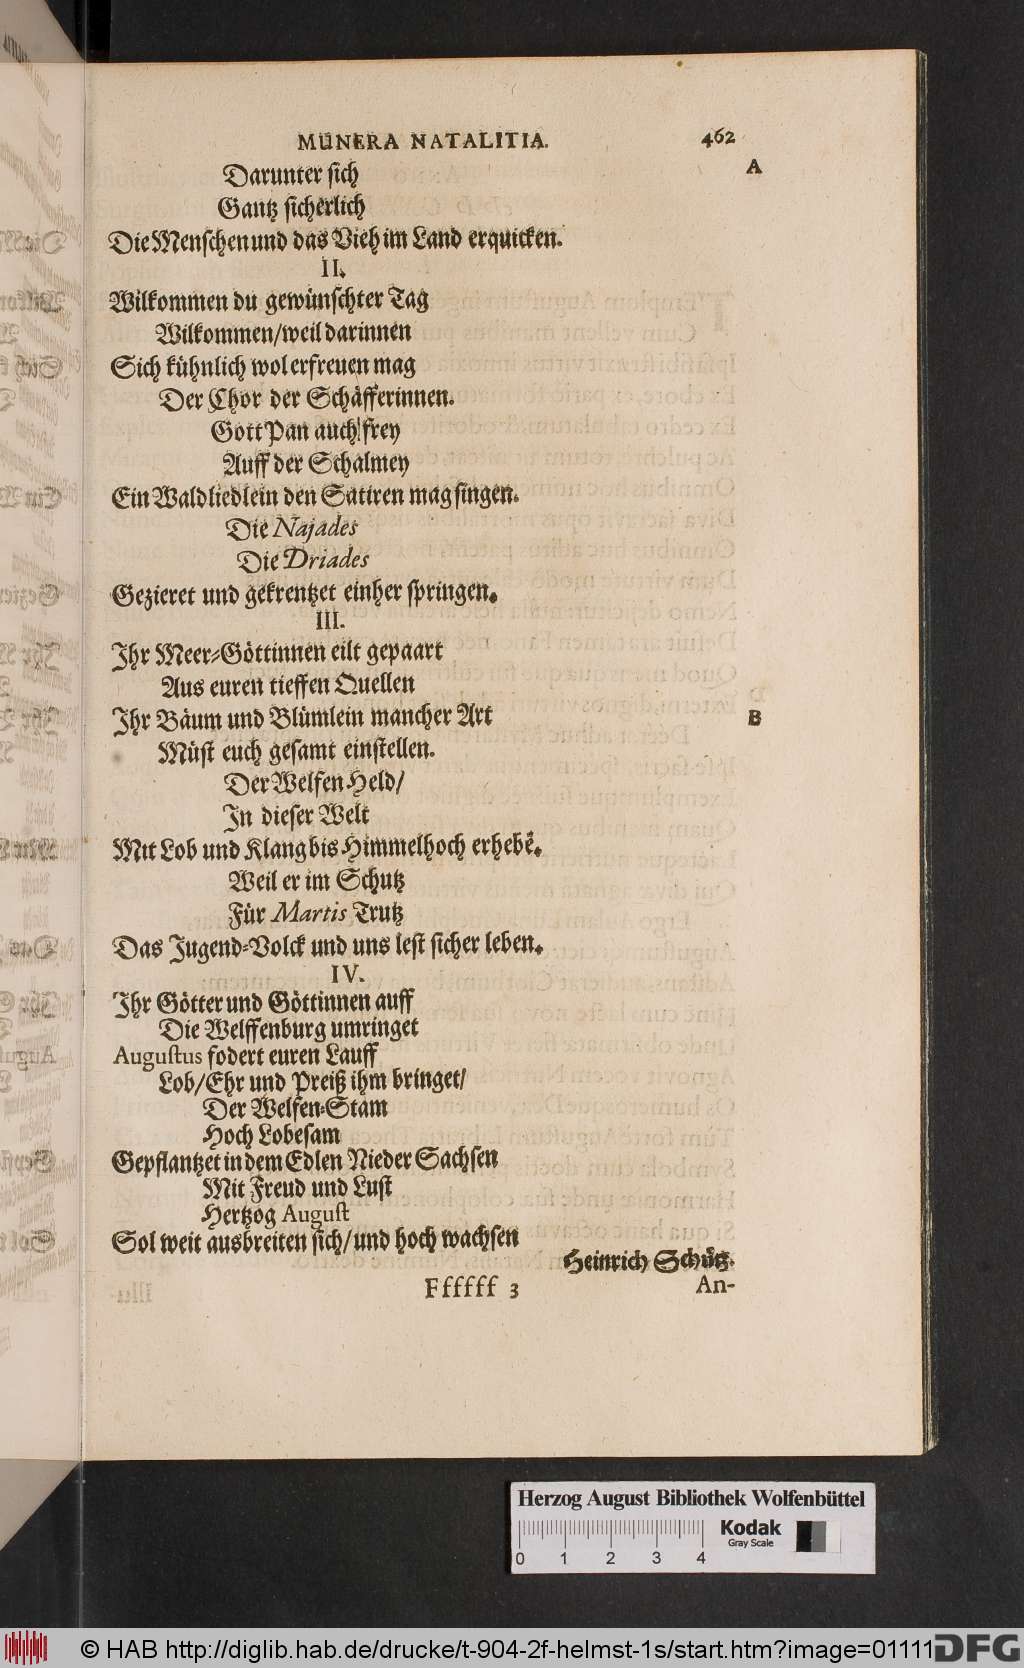 MUNERA NATALITIA.
462
Darunter sich
A
Gantz sicherlich
Die Menschen und das Vieh im Land erquicken.
II.
Wilkommen du gewünschter Tag
Wilkommen/weil darinnen
Sich kühnlich wol erfreuen mag
Der Chor der Schäfferinnen.
Gott Pan auch frey
Auff der Schalmey
Ein Waldliedlein den Satiren mag singen.
Die Najades
Die Driades
Gezieret und gekrentzet einher springen.
III.
Ihr Meer-Göttinnen eilt gepaart
Aus euren tieffen Quellen
Ihr Bäum und Blümlein mancher Art
B
Müst euch gesamt einstellen.
Der Welfen Held/
In dieser Welt
Mit Lob und Klang bis Himmelhoch erhebẽ.
Weil er im Schutz
Für Martis Trutz
Das Jugend-Volck und uns lest sicher leben.
IV.
Ihr Götter und Göttinnen auff
Die Welffenburg umringet
Augustus fodert euren Lauff
Lob/Ehr und Preiß ihm bringet/
Der Welfen-Stam
Hoch Lobesam
Gepflantzet in dem Edlen Nieder Sachsen
Mit Freud und Lust
Hertzog August
Sol weit ausbreiten sich/und hoch wachsen
Heinrich Schütz.
Ffffff 3
An-
Herzog August Bibliothek Wolfenbüttel
0 1 2 3 4
Kodak
Gray Scale
© HAB http://diglib.hab.de/drucke/t-904-2f-helmst-1s/start.htm?image=01111
DFG